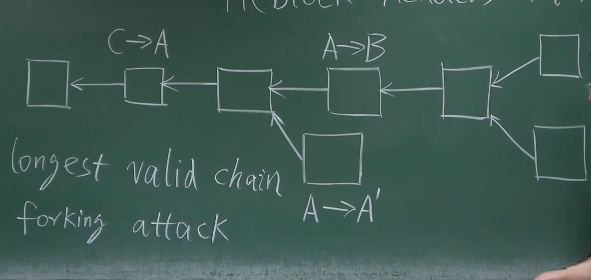 H(block header)
C→A
A→B
A→A'
longest valid chain
forking attack